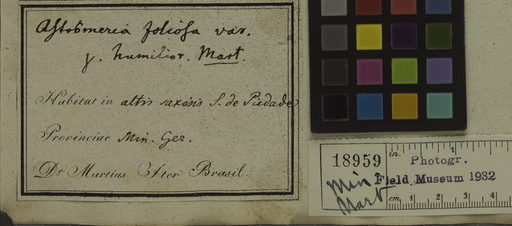 Alstroemeria foliosa var.
γ. humilior. Mart
Habitat in altis saxosis S. de Piedade
Provinciae Min. Ger.
Dr Martius Iter Brasil.
18959
in. 1
Photogr.
Field Museum 1932
Min
Mart
cm. 1 2 3 4